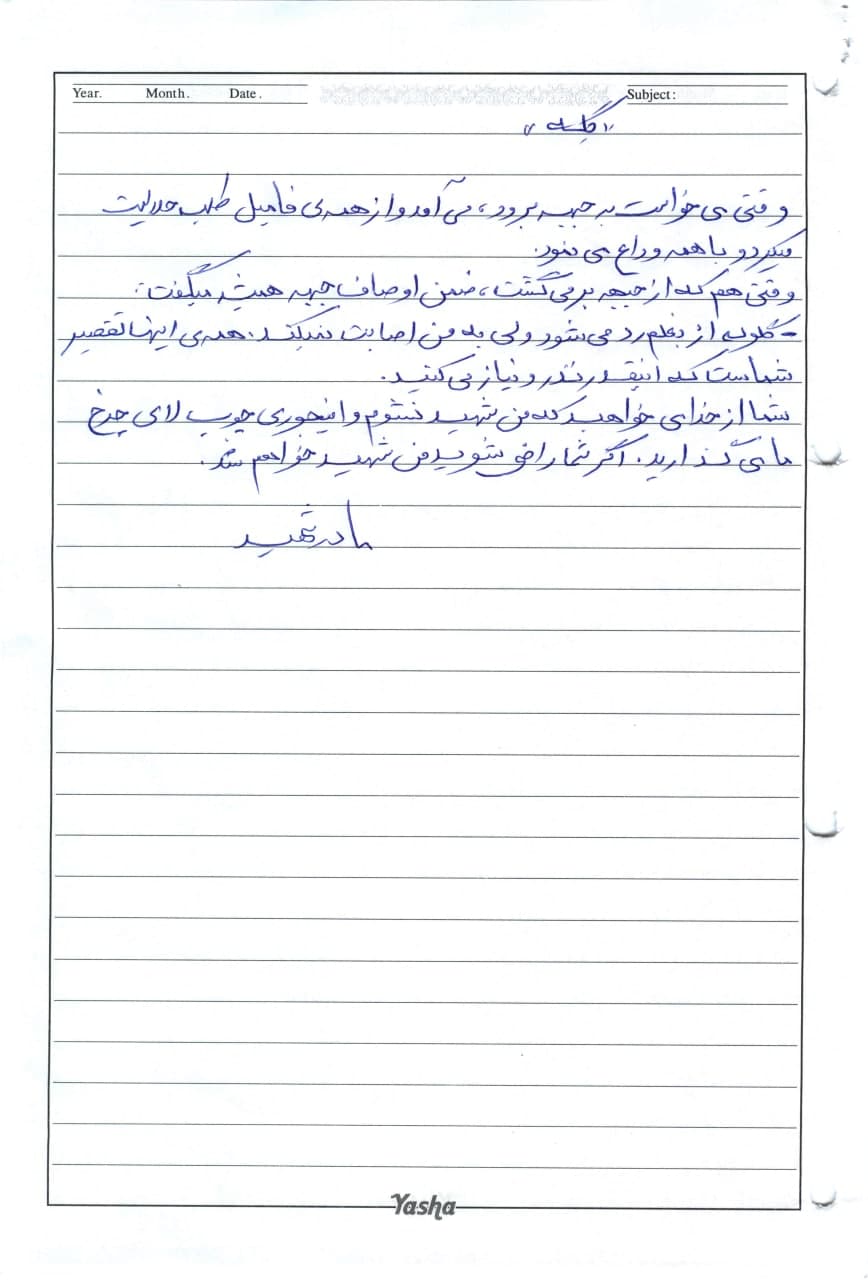 Year. Month. Date. Subject:
"گله"
وقتی می خواست به جبهه برود، می آمد و از همه ی فامیل طلب حلالیت
میکرد و با همه وداع می نمود.
وقتی هم که از جبهه بر می گشت، ضمن اوصاف جبهه همیشه میگفت:
- گلوله از بغلم رد می شود ولی به من اصابت نمیکند. همه ی اینها تقصیر
شماست که اینقدر نذر و نیاز می کنید.
شما از خدا می خواهید که من شهید نشوم و اینجوری چوب لای چرخ
ما می گذارید. اگر شما راضی شوید من شهید خواهم شد.
مادر شهید
Yasha